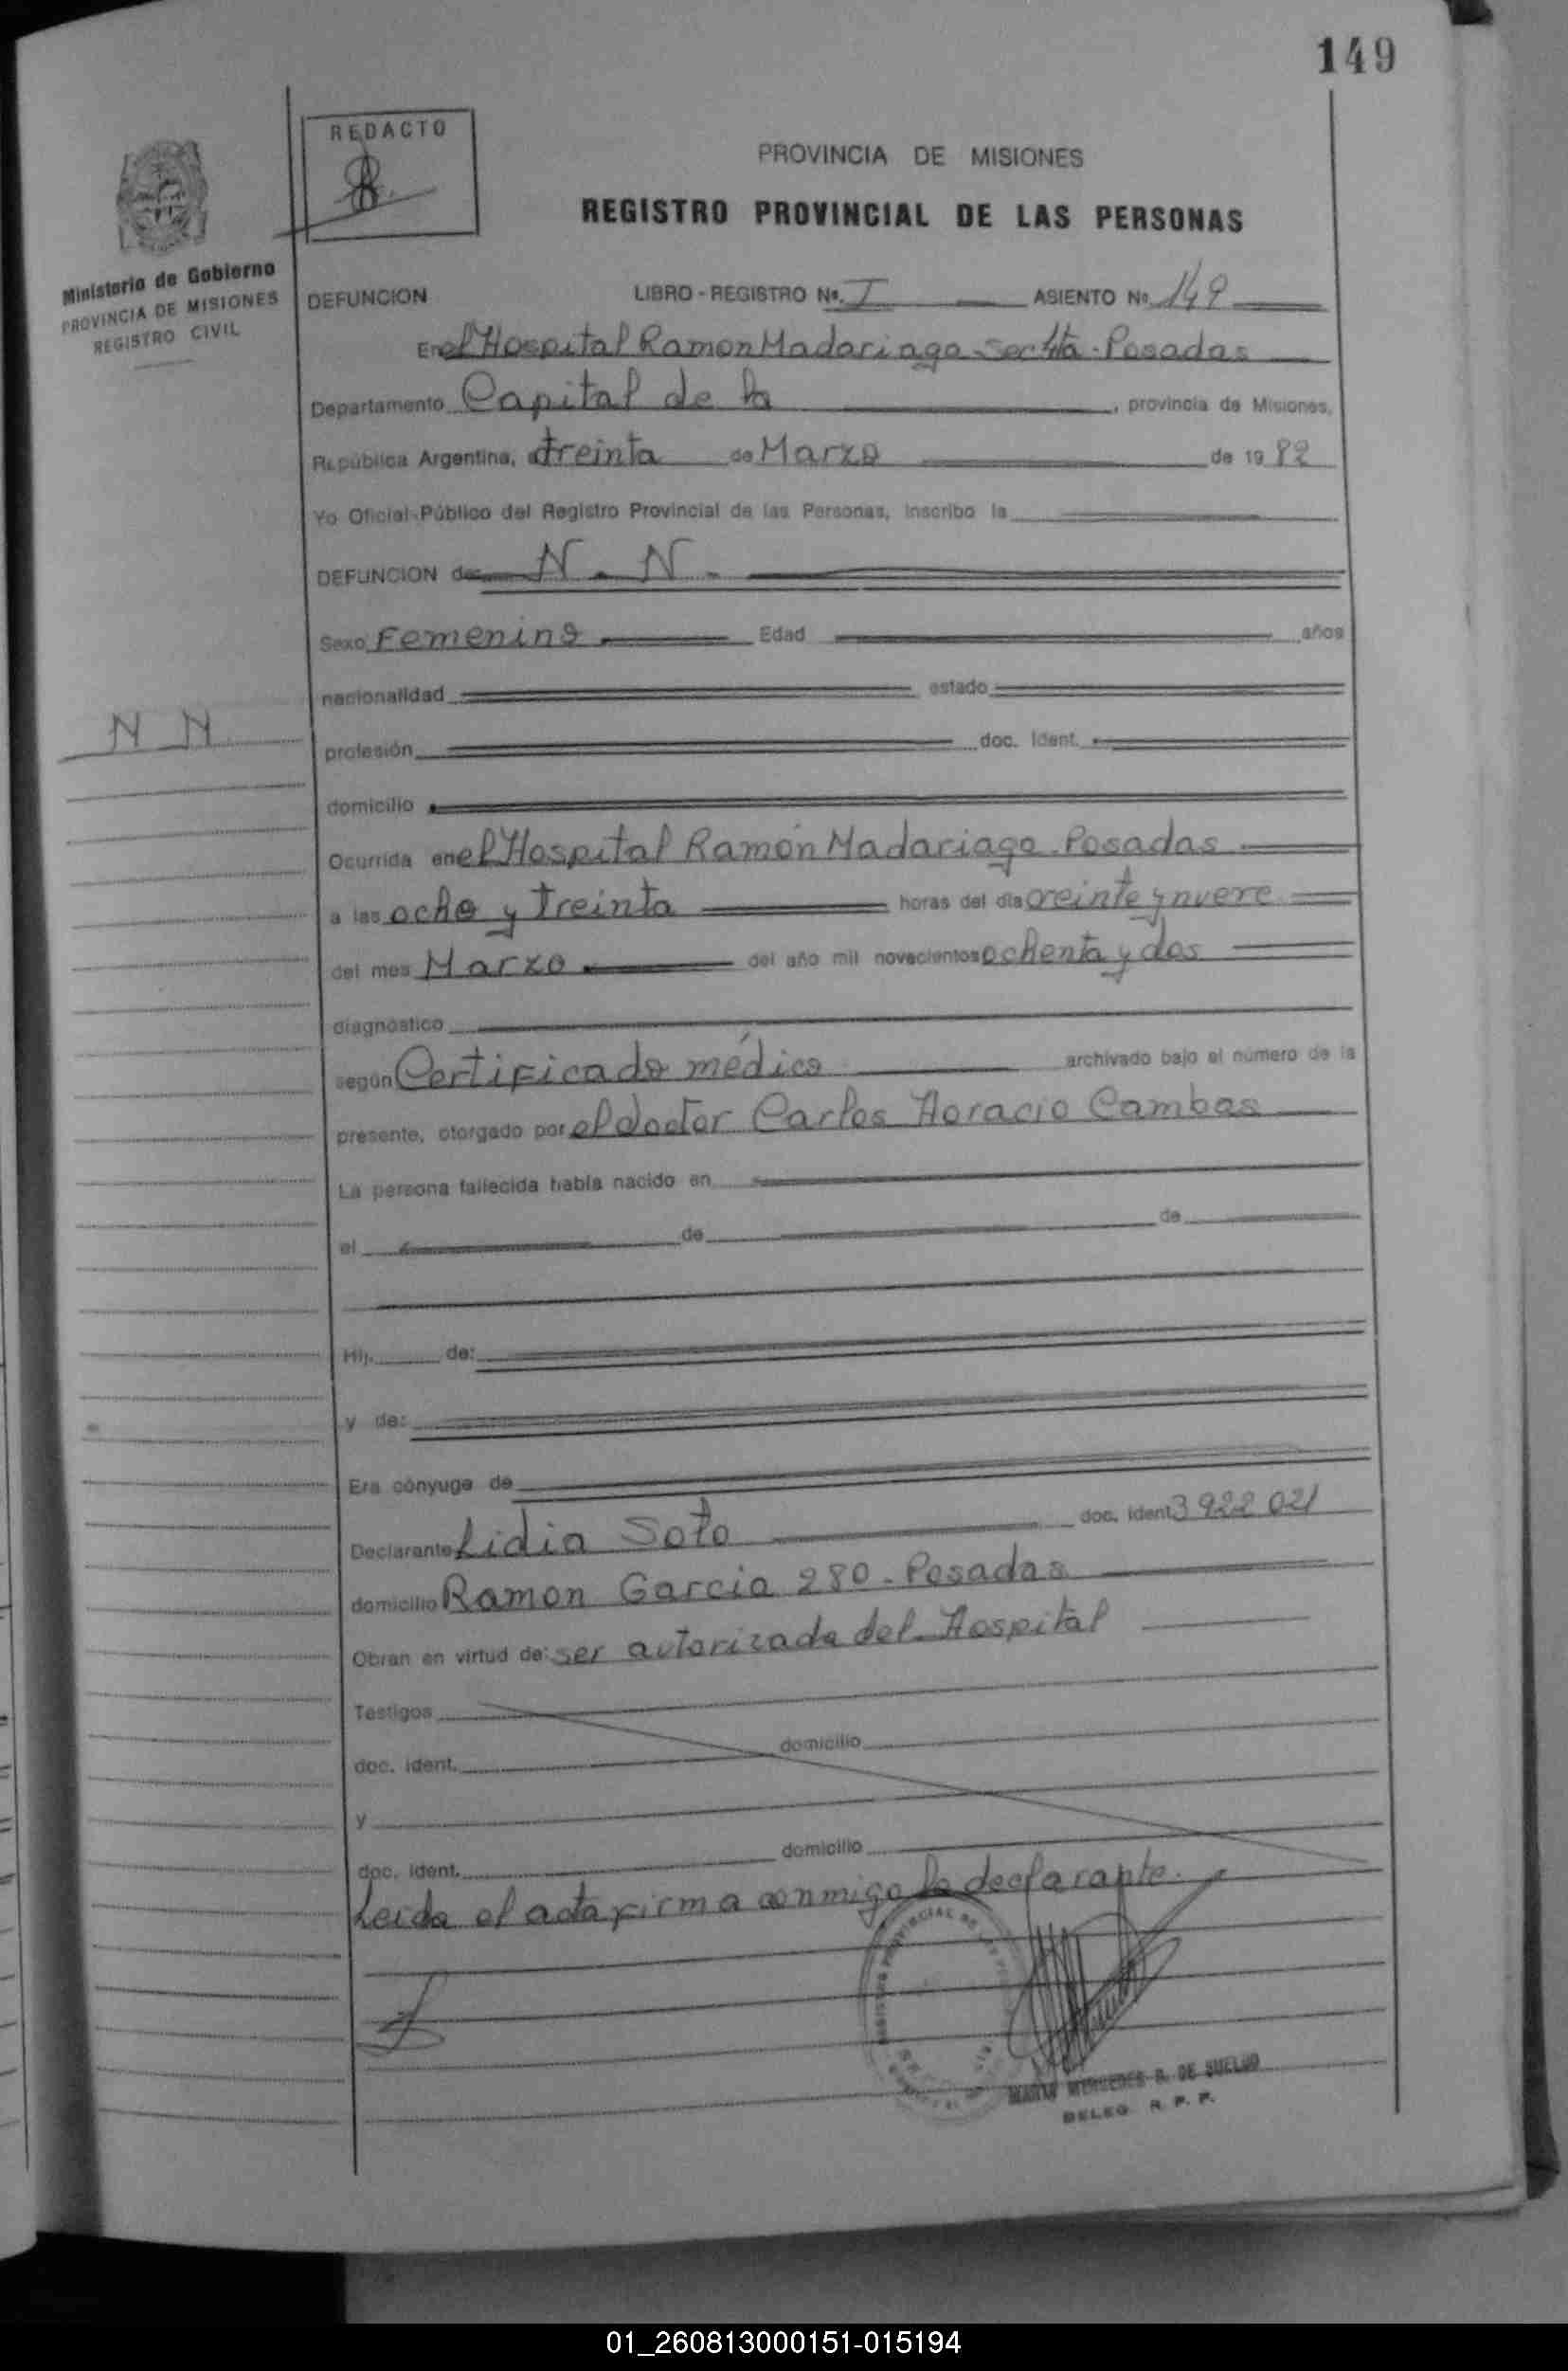 149
REDACTO
PROVINCIA DE MISIONES
REGISTRO PROVINCIAL DE LAS PERSONAS
Ministerio de Gobierno
PROVINCIA DE MISIONES
REGISTRO CIVIL
DEFUNCION LIBRO - REGISTRO Nº. I ASIENTO Nº 149
En el Hospital Ramon Madariaga - Posadas
Departamento Capital de la , provincia de Misiones,
República Argentina, a treinta de Marzo de 19 82
Yo Oficial Público del Registro Provincial de las Personas, inscribo la
DEFUNCION de N. N.
Sexo Femenino Edad años
nacionalidad estado
N N
profesión doc. Ident.
domicilio
Ocurrida en el Hospital Ramón Madariaga - Posadas
a las ocho y treinta horas del día veinte y nueve
del mes Marzo del año mil novecientos ochenta y dos
diagnóstico
según Certificado médico archivado bajo el número de la
presente, otorgado por el doctor Carlos Horacio Cambas
La persona fallecida había nacido en
el de de
Hij. de:
y de:
Era cónyuge de
Declarante Lidia Soto doc. ident. 3 922 021
domicilio Ramon Garcia 280 - Posadas
Obran en virtud de: ser autorizada del Hospital
Testigos
doc. ident. domicilio
y
doc. ident. domicilio
Leida el acta firma conmigo la declarante.
DE SUELDO
DELEG. R. P. P.
01_260813000151-015194